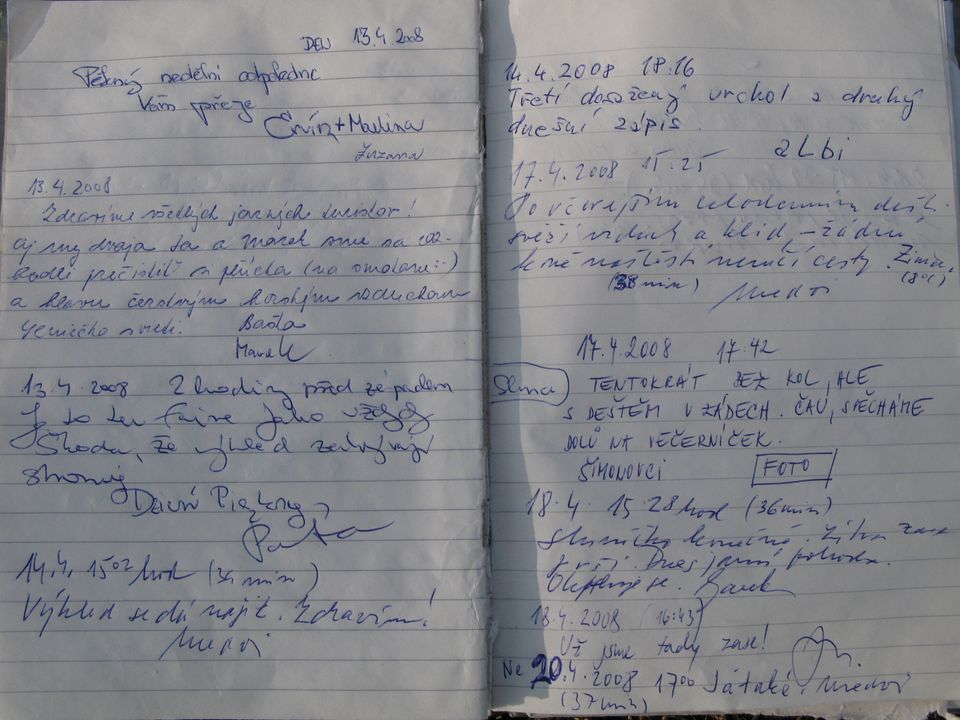 DEN 13.4.2008
Pěkný nedělní odpoledne
Vám přeje
Ervín + Martina
Zuzana
13.4.2008
Zdravíme všetkých jarných turistov!
aj my dvaja sa a Marek sme sa
prečistiť si pľúcka (na smolare :-)
a hlavu čerstvým horským vzduchom
Baška
Marek
13.4.2008 2 hodiny před západem
Je to tu fajne jako vždy
Škoda, že výhled zakrývají
stromy
Dzień Piękny,
14.4. 15 02 hod (34 min)
Výhled se dá najít. Zdravím!
Medvi
14.4.2008 18.16
Třetí dosažený vrchol a druhý
dnešní zápis.
aLbi
17.4.2008 15.25
Po včerejším celodenním dešti
svěží vzduch a klid – žádní
naštěstí neničí cesty. Zima.
(38 min) (8°C)
Medvi
17.4.2008 17:42
TENTOKRÁT BEZ KOL, ALE
S DEŠTĚM V ZÁDECH. ČAU, SPĚCHÁME
DOLŮ NA VEČERNÍČEK.
ŠIMONOVCI FOTO
18.4. 15 28 hod (36 min)
Sluníčko konečně. Zítra zase
prší. Dnes jarní pohoda.
18.4.2008 (16:43)
Už jsme tady zase!
Ne 20.4.2008 17 00 Medvi
(37 min)